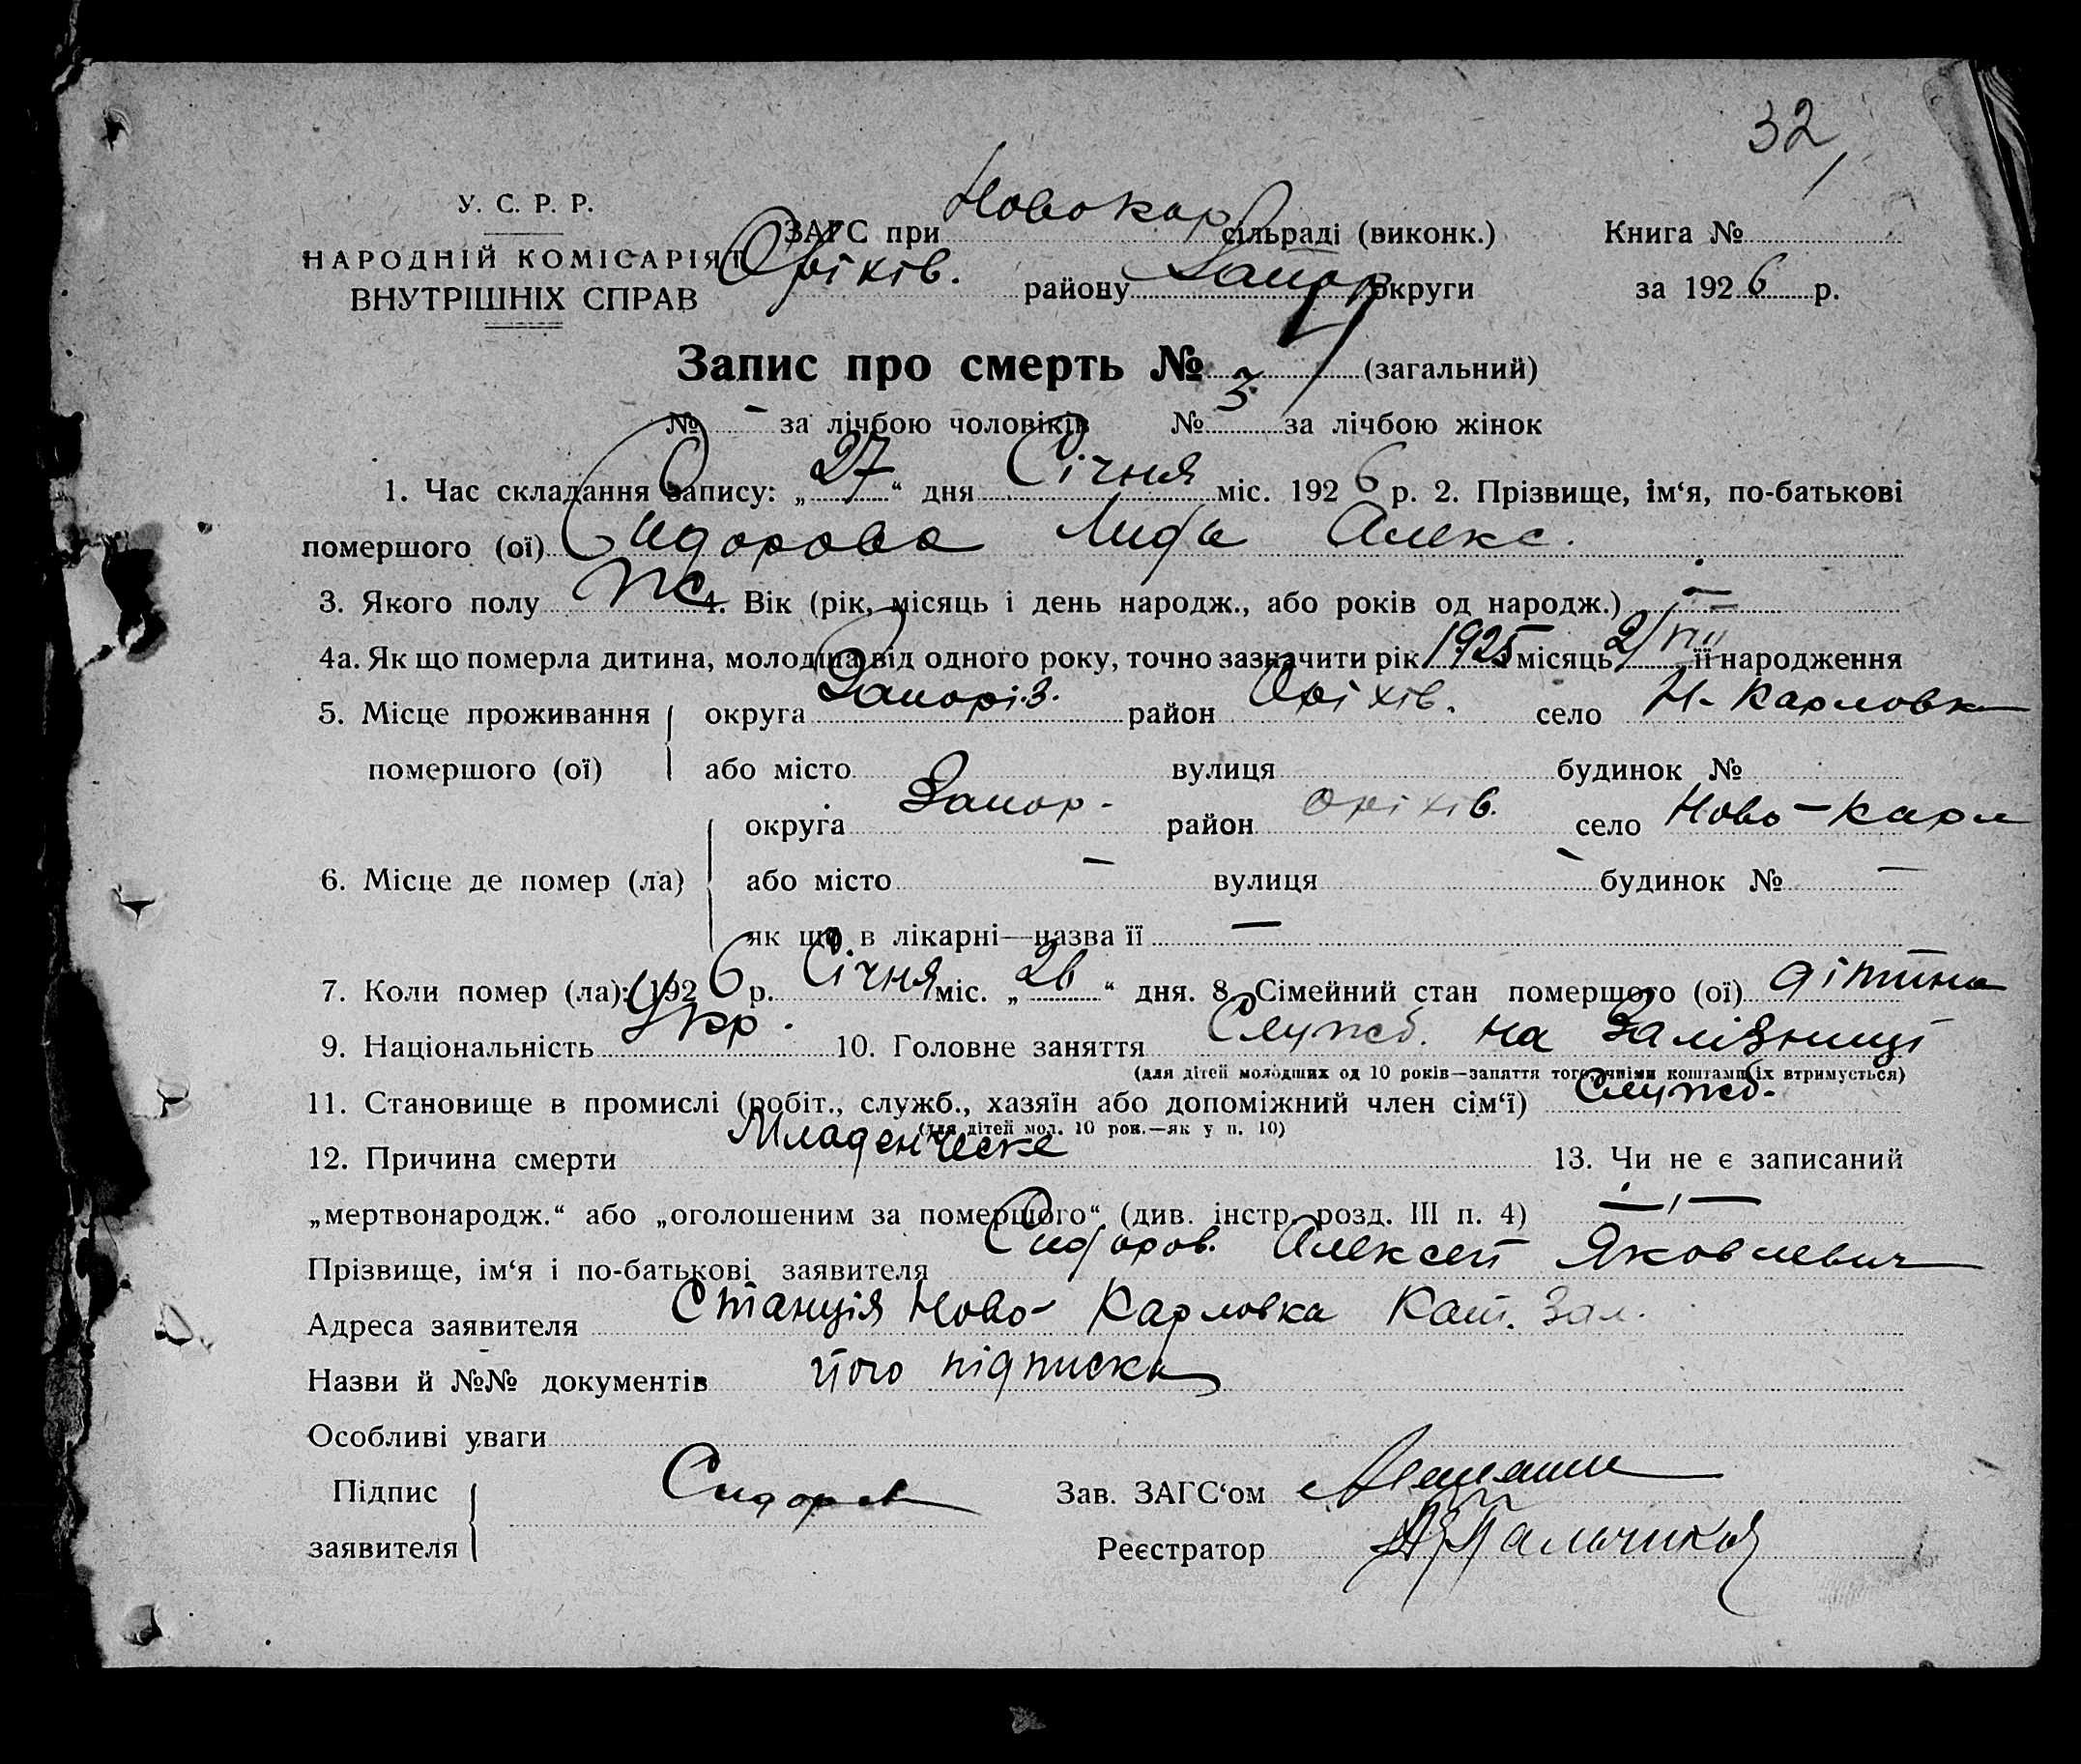 32
У. С. Р. Р.
НАРОДНІЙ КОМІСАРІЯТ
ВНУТРІШНІХ СПРАВ
ЗАГС при Новокар сільраді (виконк.) Книга №
Оріхів. району Запор округи за 1926 р.
Запис про смерть № (загальний)
№ – за лічбою чоловіків № 3 за лічбою жінок
1. Час складання запису: „27“ дня Січня міс. 1926 р. 2. Прізвище, ім‘я, по-батькові
помершого (ої) Сидорова Лида Алекс.
3. Якого полу ж 4. Вік (рік, місяць і день народж., або років од народж.) –
4а. Як що померла дитина, молодша від одного року, точно зазначити рік 1925 місяць 2/VII її народження
5. Місце проживання округа Запоріз. район Оріхів. село Н-Карловка
помершого (ої) або місто вулиця будинок №
округа Запор- район Оріхів. село Ново-Карл
6. Місце де помер (ла) або місто – вулиця – будинок № –
як що в лікарні—назва її —
7. Коли помер (ла): 1926 р. Січня міс. „26“ дня. 8. Сімейний стан помершого (ої) дітина
9. Національність Укр. 10. Головне заняття Служб. на Залізниці
(для дітей молодших од 10 років—заняття того, чиїми коштами їх втримується)
11. Становище в промислі (робіт., служб., хазяїн або допоміжний член сім‘ї) Служб.
(для дітей мол. 10 рок.—як у п. 10)
12. Причина смерти Младенческе 13. Чи не є записаний
„мертвонародж.“ або „оголошеним за помершого“ (див. інстр. розд. III п. 4) —,—
Прізвище, ім‘я і по-батькові заявителя Сидоров. Алексей Яковлевич
Адреса заявителя Станція Ново-Карловка Кат. Зал.
Назви й №№ документів його підписка
Особливі уваги
Підпис Сидоров Зав. ЗАГС‘ом
заявителя Реєстратор